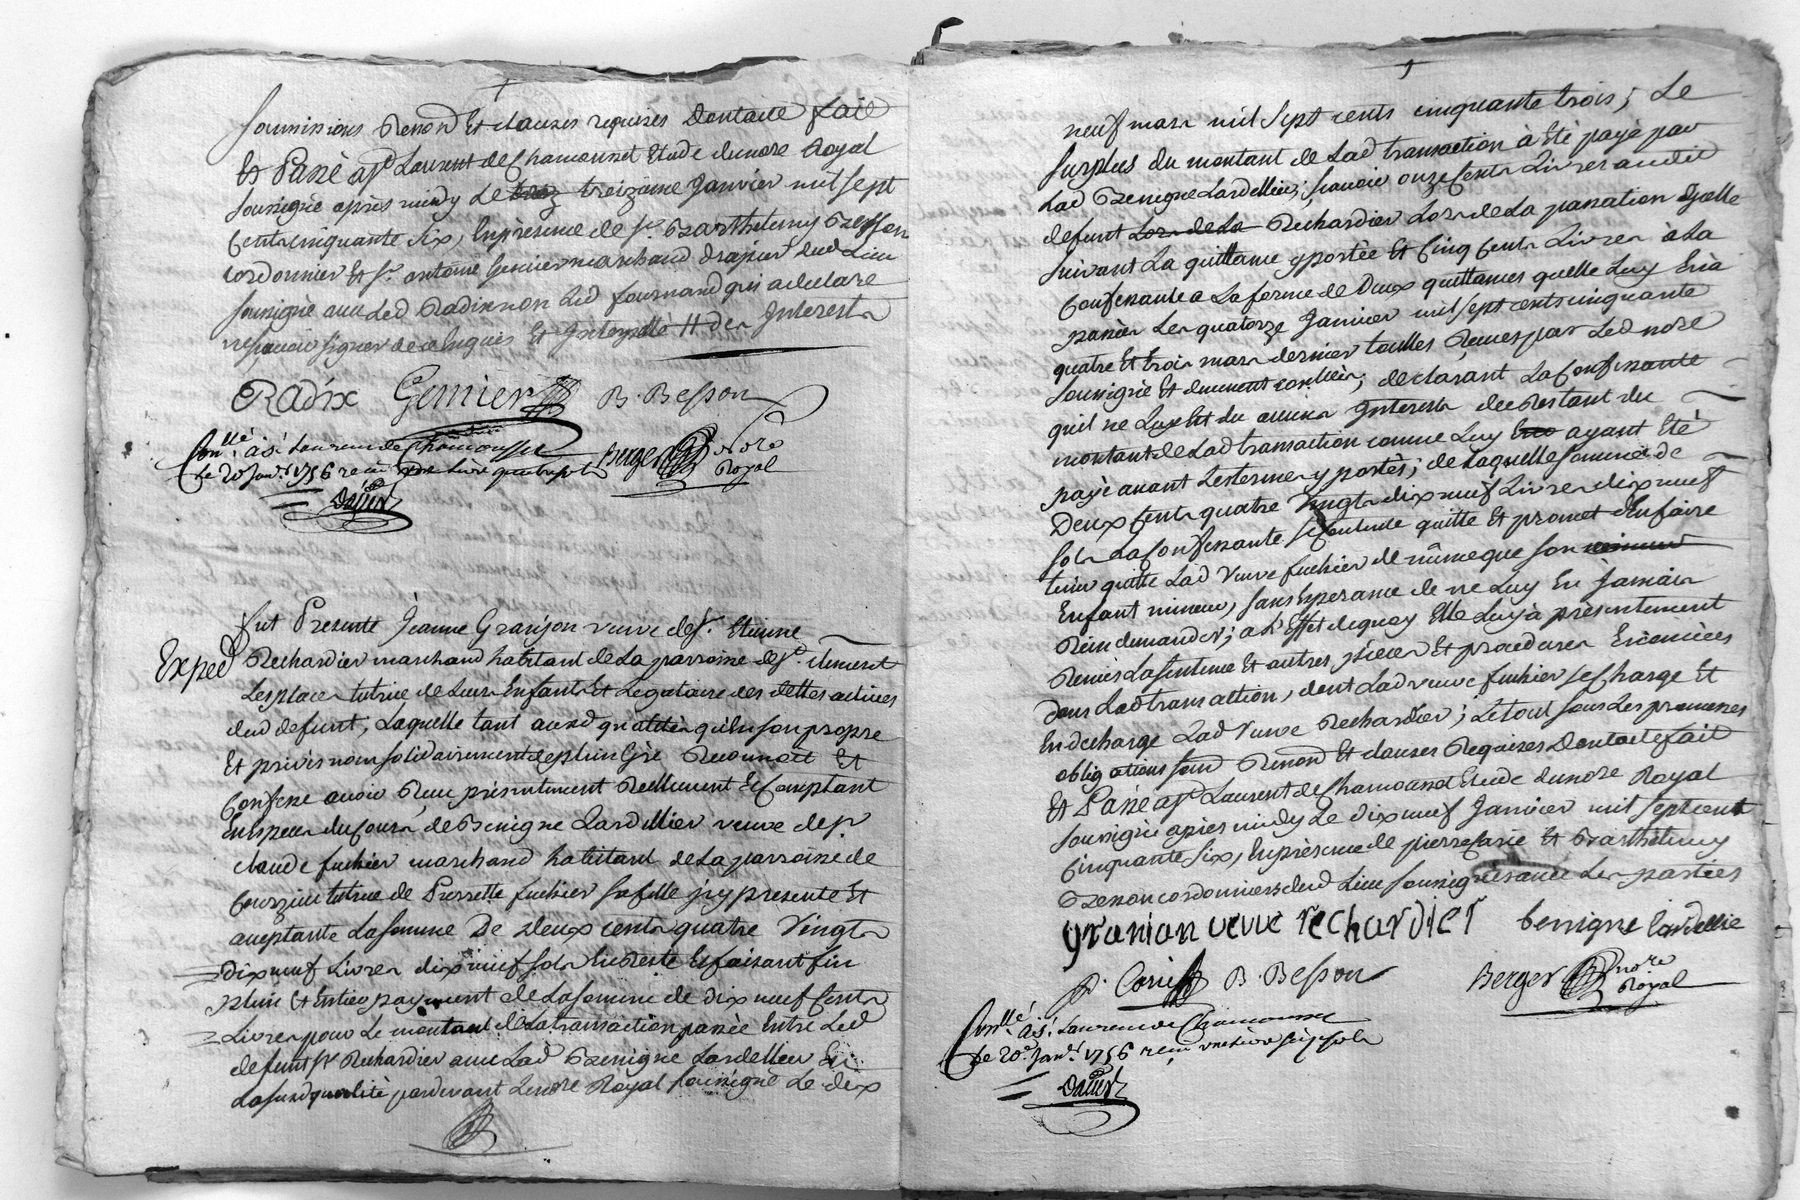 soumissions Renon Et clauses requises Dontacte fait
Et Passé a St Laurent de Chamousset Etude dunore Royal
soussigné après midy Le treiz treizieme Janvier mil sept
Cents cinquante six, En présence de sr. Barthelemy Besson
cordonnier Et sr. antoine Genier marchand drapier dud Lieu
soussigné avec Led Radix non Led fournand qui a declaré
ne sçavoir signer de ce Enquis Et Interpellé // des Interests
Radix Genier B. Besson
Conllé à St Laurens de Chamousset Berger nore
Le 20 Janr. 1756 reçu Royal
Dalier
Exped
fut Presente Jeanne Granjon veuve de sr. Etienne
Rechardier marchand habitant de La parroisse de St. clement
Les places tutrice de Leurs Enfants Et Legataire des dettes actives
dud defunt, Laquelle tant aud qualités qu'En son propre
Et privé nom solidairement de plein Gré Reconnoit Et
Confesse avoir Reçu présentement Réellement Et Comptant
En Especes du Cours de Benigne Lardellier veuve de sr.
claude fuchier marchand habitant de La parroisse de
Courzieu tutrice de Pierrette fuchier sa fille j'cy presente Et
acceptante La somme De deux cents quatre Vingts
Dix neuf Livres dix neuf sols En Reste Et faisant fin
plein Et Entier payement de La somme de dix neuf Cents
Livres pour Le montant de La transaction passée Entre Led
defunt sr Rechardier avec Lad Benigne Lardellier En
La susd qualité pardevant Lenore Royal soussigné Le dix
neuf mars mil sept cents cinquante trois; Le
surplus du montant de Lad transaction à Eté payé par
Lad Benigne Lardellier; sçavoir onze Cents Livres audit
defunt Lors de La Rechardier Lors de La passation d'jcelle
suivant La quittance y portée Et Cinq Cents Livres à La
Confessante a La forme de Deux quittances quelle Luy En a
passées Les quatorze Janvier mil sept cents cinquante
quatre Et trois mars dernier touttes Reçues par Led nore
soussigné Et duement conllées; declarant La Confessante
quil ne Luy Est du aucuns Interests du Restant du
montant de Lad transaction comme Luy ayant Eté
payé avant Les termes y portés; de Laquelle somme de
Deux Cents quatre Vingts dix neuf Livres dix neuf
sols La Confessante se Contente quitte Et promet d'En faire
tenir quitte Lad Veuve fuchier de même que son
Enfant mineur, sans Esperance de ne Luy En Jamais
Rien demander; a L'Effet dequoy Elle Luy à présentement
Remis La sentence Et autres pieces Et procedures Enoncées
dans Lad transaction, dont Lad veuve fuchier se Charge Et
En decharge Lad Veuve Rechardier; Le tout sous Les promesses
obligations soum Renon Et clauses Requises Dontacte fait
Et Passé a St Laurent de Chamousset Etude dunore Royal
soussigné apres midy Le dix neuf Janvier mil sept cent
Cinquante six, En présence de pierre Carié Et Barthelemy
Besson cordonniers dud Lieu soussignés avec Les parties
granian veuve rechardier benigne lardellie
P. Carié B. Besson Berger nore
Royal
Conllé à St. Laurens de Chamousset
Le 20e. Janr. 1756 reçu une livre six sols
Dalier